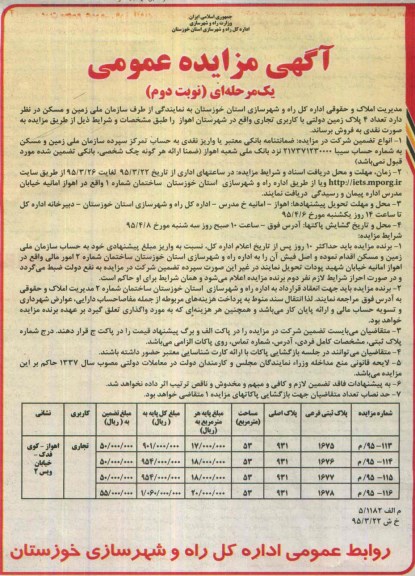 جمهوری اسلامی ایران
وزارت راه و شهرسازی
اداره کل راه و شهرسازی استان خوزستان
آگهی مزایده عمومی
یک‌مرحله‌ای (نوبت دوم)
مدیریت املاک و حقوقی اداره کل راه و شهرسازی استان خوزستان به نمایندگی از طرف سازمان ملی زمین و مسکن در نظر
دارد تعداد ۴ پلاک زمین دولتی با کاربری تجاری واقع در شهرستان اهواز را طبق مشخصات و شرایط ذیل از طریق مزایده به
صورت نقدی به فروش برساند.
۱- انواع تضمین شرکت در مزایده: ضمانتنامه بانکی معتبر یا واریز نقدی به حساب تمرکز سپرده سازمان ملی زمین و مسکن
به شماره حساب سیبا ۲۱۷۳۷۱۲۳۰۰۰۰ نزد بانک ملی شعبه اهواز (ضمنا ارائه هر گونه چک شخصی، بانکی تضمین شده مورد
قبول نمی‌باشد)
۲- زمان، مهلت و محل دریافت اسناد و شرایط مزایده: در ساعتهای اداری از تاریخ ۹۵/۳/۲۲ لغایت ۹۵/۳/۲۶ از طریق سایت
http://iets.mporg.ir ویا از طریق اداره راه و شهرسازی استان خوزستان ساختمان شماره ۱ واقع در اهواز امانیه خیابان
مدرس اداره پیمان و رسیدگی دریافت نمایند.
۳- محل و مهلت تحویل پیشنهادها: اهواز - امانیه خ مدرس - اداره کل راه و شهرسازی استان خوزستان - دبیرخانه اداره کل
تا ساعت ۱۴ روز یکشنبه مورخ ۹۵/۴/۶
۴- محل و تاریخ گشایش پاکتها: آدرس فوق - ساعت ۱۰ صبح روز سه شنبه مورخ ۹۵/۴/۸
شرایط مزایده:
۱- برنده مزایده باید حداکثر ۱۰ روز پس از تاریخ اعلام اداره کل، نسبت به واریز مبلغ پیشنهادی خود به حساب سازمان ملی
زمین و مسکن اقدام نموده و اصل فیش آن را به اداره راه و شهرسازی استان خوزستان ساختمان شماره ۲ امور مالی واقع در
اهواز امانیه خیابان شهید پودات تحویل نمایند در غیر این صورت سپرده تضمین شرکت در مزایده به نفع دولت ضبط می‌گردد
و در صورت احراز شرایط لازم نفر دوم برنده مزایده اعلام می‌شود و همان شرایط برای او حاکم است.
۲- برنده مزایده باید جهت انعقاد قرارداد به اداره راه و شهرسازی استان خوزستان ساختمان شماره ۲ مدیریت املاک و حقوقی
به آدرس فوق مراجعه نمایند. لذا انتقال سند منوط به پرداخت هزینه‌های مربوطه از جمله مفاصاحساب دارایی، عوارض شهرداری
و تسویه حساب مالی و ارائه پایان کار می‌باشد و همچنین هر هزینه‌ای که به مورد واگذاری تعلق گیرد بر عهده برنده مزایده
خواهد بود.
۳- متقاضیان می‌بایست تضمین شرکت در مزایده را در پاکت الف و برگ پیشنهاد قیمت را در پاکت ج قرار دهند. درج شماره
پلاک ثبتی، مشخصات کامل فردی، آدرس، شماره تماس، روی پاکات الزامی می‌باشد.
۴- متقاضیان می‌توانند در جلسه بازگشایی پاکات با ارائه کارت شناسایی معتبر حضور داشته باشند.
۵- لایحه قانونی منع مداخله وزراء نمایندگان مجلس و کارمندان دولت در معاملات دولتی مصوب سال ۱۳۳۷ حاکم بر این
مزایده می‌باشد.
۶- به پیشنهادات فاقد تضمین لازم و کافی و مبهم و مخدوش و ناقص ترتیب اثر داده نخواهد شد.
۷- حد نصاب تعداد متقاضیان جهت بازگشایی پاکتهای مزایده ۱ متقاضی خواهد بود.
شماره مزایده پلاک ثبتی فرعی پلاک اصلی مساحت (مترمربع) مبلغ پایه هر مترمربع به (ریال) مبلغ کل پایه به (ریال) مبلغ تضمین به (ریال) کاربری نشانی
۱۱۳-۹۵/م ۱۶۷۵ ۹۳۱ ۵۳ ۱۷/۰۰۰/۰۰۰ ۹۰۱/۰۰۰/۰۰۰ ۵۰/۰۰۰/۰۰۰ تجاری اهواز - کوی فدک - خیابان ویس ۲
۱۱۴-۹۵/م ۱۶۷۶ ۹۳۱ ۵۳ ۱۸/۰۰۰/۰۰۰ ۹۵۴/۰۰۰/۰۰۰ ۵۰/۰۰۰/۰۰۰
۱۱۵-۹۵/م ۱۶۷۷ ۹۳۱ ۵۳ ۱۸/۰۰۰/۰۰۰ ۹۵۴/۰۰۰/۰۰۰ ۵۰/۰۰۰/۰۰۰
۱۱۶-۹۵/م ۱۶۷۸ ۹۳۱ ۵۳ ۲۰/۰۰۰/۰۰۰ ۱/۰۶۰/۰۰۰/۰۰۰ ۵۵/۰۰۰/۰۰۰
م الف ۵/۱۱۸۲
خ ش ۹۵/۳/۲۲
روابط عمومی اداره کل راه و شهرسازی خوزستان